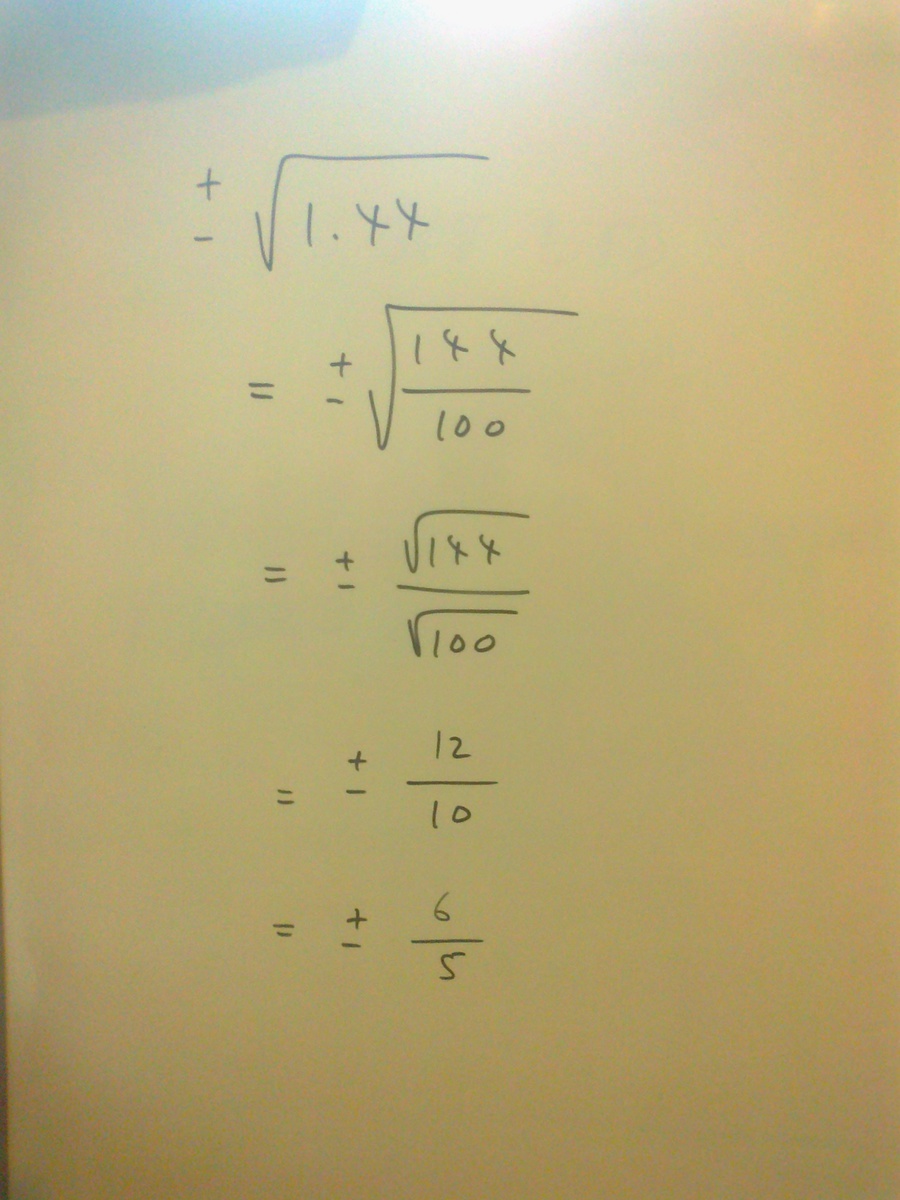 ± √1.44
= ± √(144/100)
= ± √144/√100
= ± 12/10
= ± 6/5